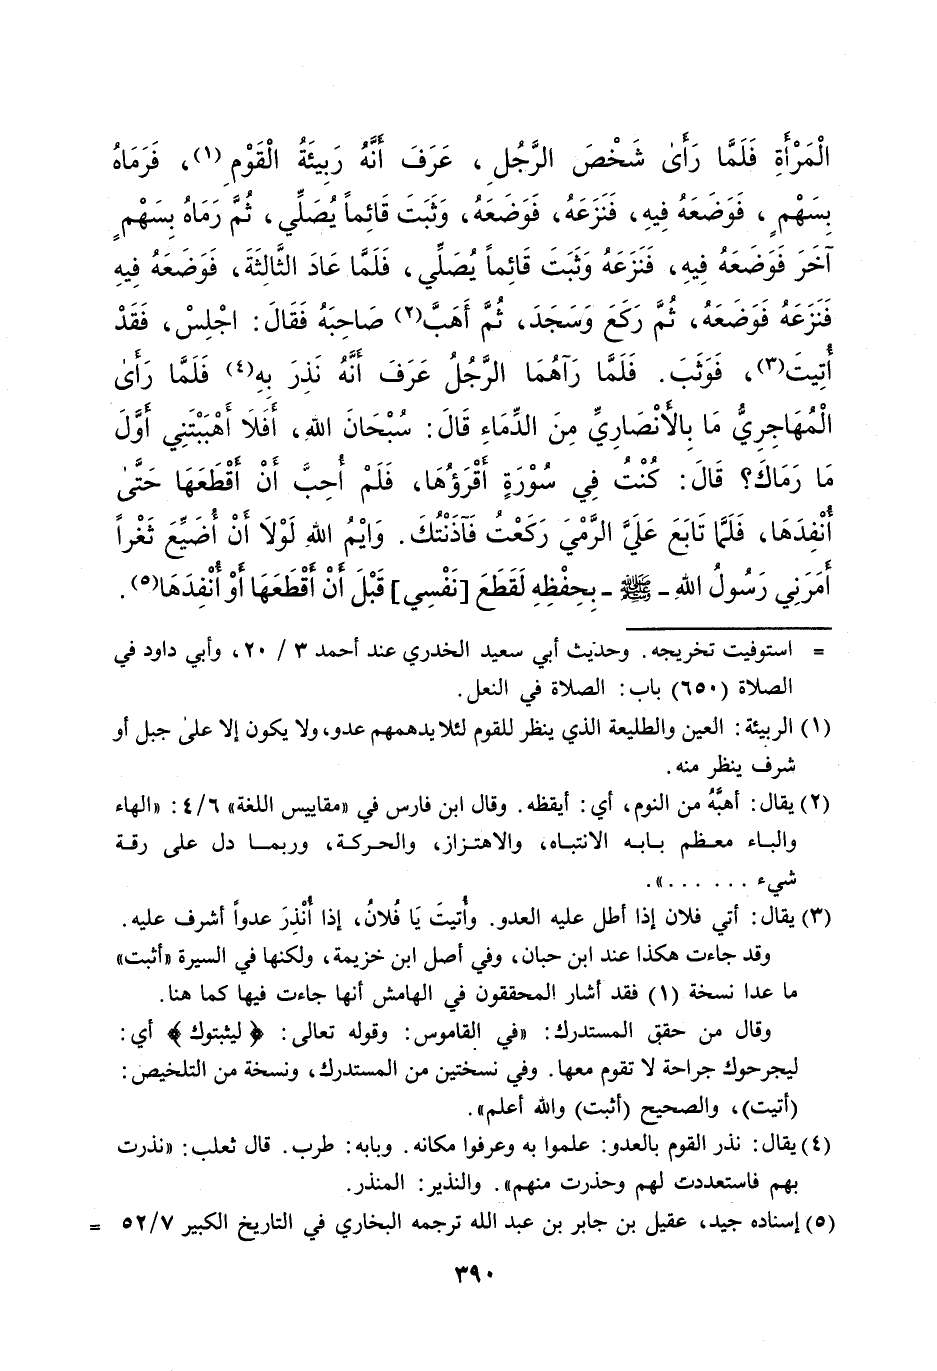 الْمَرْأَةِ فَلَمَّا رَأَىٰ شَخْصَ الرَّجُلِ، عَرَفَ أَنَّهُ رَبِيئَةُ الْقَوْمِ(١)، فَرَمَاهُ
بِسَهْمٍ، فَوَضَعَهُ فِيهِ، فَنَزَعَهُ، فَوَضَعَهُ، وَثَبَتَ قَائِماً يُصَلِّي، ثُمَّ رَمَاهُ بِسَهْمٍ
آخَرَ فَوَضَعَهُ فِيهِ، فَنَزَعَهُ وَثَبَتَ قَائِماً يُصَلِّي، فَلَمَّا عَادَ الثَّالِثَةَ، فَوَضَعَهُ فِيهِ
فَنَزَعَهُ فَوَضَعَهُ، ثُمَّ رَكَعَ وَسَجَدَ، ثُمَّ أَهَبَّ(٢) صَاحِبَهُ فَقَالَ: اجْلِسْ، فَقَدْ
أُتِيتَ(٣)، فَوَثَبَ. فَلَمَّا رَآهُمَا الرَّجُلُ عَرَفَ أَنَّهُ نَذِرَ بِهِ(٤) فَلَمَّا رَأَىٰ
الْمُهَاجِرِيُّ مَا بِالأَنْصَارِيِّ مِنَ الدِّمَاءِ قَالَ: سُبْحَانَ اللهِ، أَفَلَا أَهْبَبْتَنِي أَوَّلَ
مَا رَمَاكَ؟ قَالَ: كُنْتُ فِي سُوْرَةٍ أَقْرَؤُهَا، فَلَمْ أُحِبَّ أَنْ أَقْطَعَهَا حَتَّىٰ
أُنْفِدَهَا، فَلَمَّا تَابَعَ عَلَيَّ الرَّمْيَ رَكَعْتُ فَآذَنْتُكَ. وَايْمُ اللهِ لَوْلَا أَنْ أُضَيِّعَ ثَغْراً
أَمَرَنِي رَسُولُ اللهِ - ﷺ - بِحِفْظِهِ لَقَطَعَ [نَفْسِي] قَبْلَ أَنْ أَقْطَعَهَا أَوْ أُنْفِدَهَا(٥).
= استوفيت تخريجه. وحديث أبي سعيد الخدري عند أحمد ٣ / ٢٠، وأبي داود في
الصلاة (٦٥٠) باب: الصلاة في النعل.
(١) الربيئة: العين والطليعة الذي ينظر للقوم لئلا يدهمهم عدو، ولا يكون إلا علىٰ جبل أو
شرف ينظر منه.
(٢) يقال: أهبَّهُ من النوم، أي: أيقظه. وقال ابن فارس في «مقاييس اللغة» ٤/٦: «الهاء
والباء معظم بابه الانتباه، والاهتزاز، والحركة، وربما دل على رقة
شيء ......».
(٣) يقال: أتي فلان إذا أطل عليه العدو. وأُتيتَ يَا فُلانُ، إذا أُنْذِرَ عدواً أشرف عليه.
وقد جاءت هكذا عند ابن حبان، وفي أصل ابن خزيمة، ولكنها في السيرة «أثبت»
ما عدا نسخة (١) فقد أشار المحققون في الهامش أنها جاءت فيها كما هنا.
وقال من حقق المستدرك: «في القاموس: وقوله تعالى: ﴿ ليثبتوك ﴾ أي:
ليجرحوك جراحة لا تقوم معها. وفي نسختين من المستدرك، ونسخة من التلخيص:
(أتيت)، والصحيح (أثبت) والله أعلم».
(٤) يقال: نذر القوم بالعدو: علموا به وعرفوا مكانه. وبابه: طرب. قال ثعلب: «نذرت
بهم فاستعددت لهم وحذرت منهم». والنذير: المنذر.
(٥) إسناده جيد، عقيل بن جابر بن عبد الله ترجمه البخاري في التاريخ الكبير ٥٢/٧ =
٣٩٠